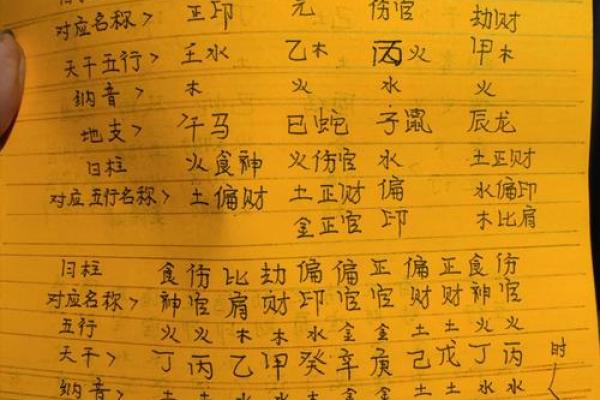 对应名称> 正印 元 伤官 劫财
天干五行> 壬水 乙木 丙火 甲木
纳音> 木 火 水 火
地支> 午马 巳蛇 子鼠 辰龙
日柱 火食神 火伤官 水 土正财
对应五行名称> 土偏财 土正财 偏 水偏印
金正官 印 木比肩
日柱 食 伤 比 劫 偏 偏 正 偏 正 食 伤
对应名称> 神 官 肩 财 印 官 官 财 财 神 官
五行 火 火 木 木 水 金 金 土 土 火 火
天干> 丁 丙 乙 甲 癸 辛 庚 己 戊 丁 丙 时
纳音> 土 土 水 水